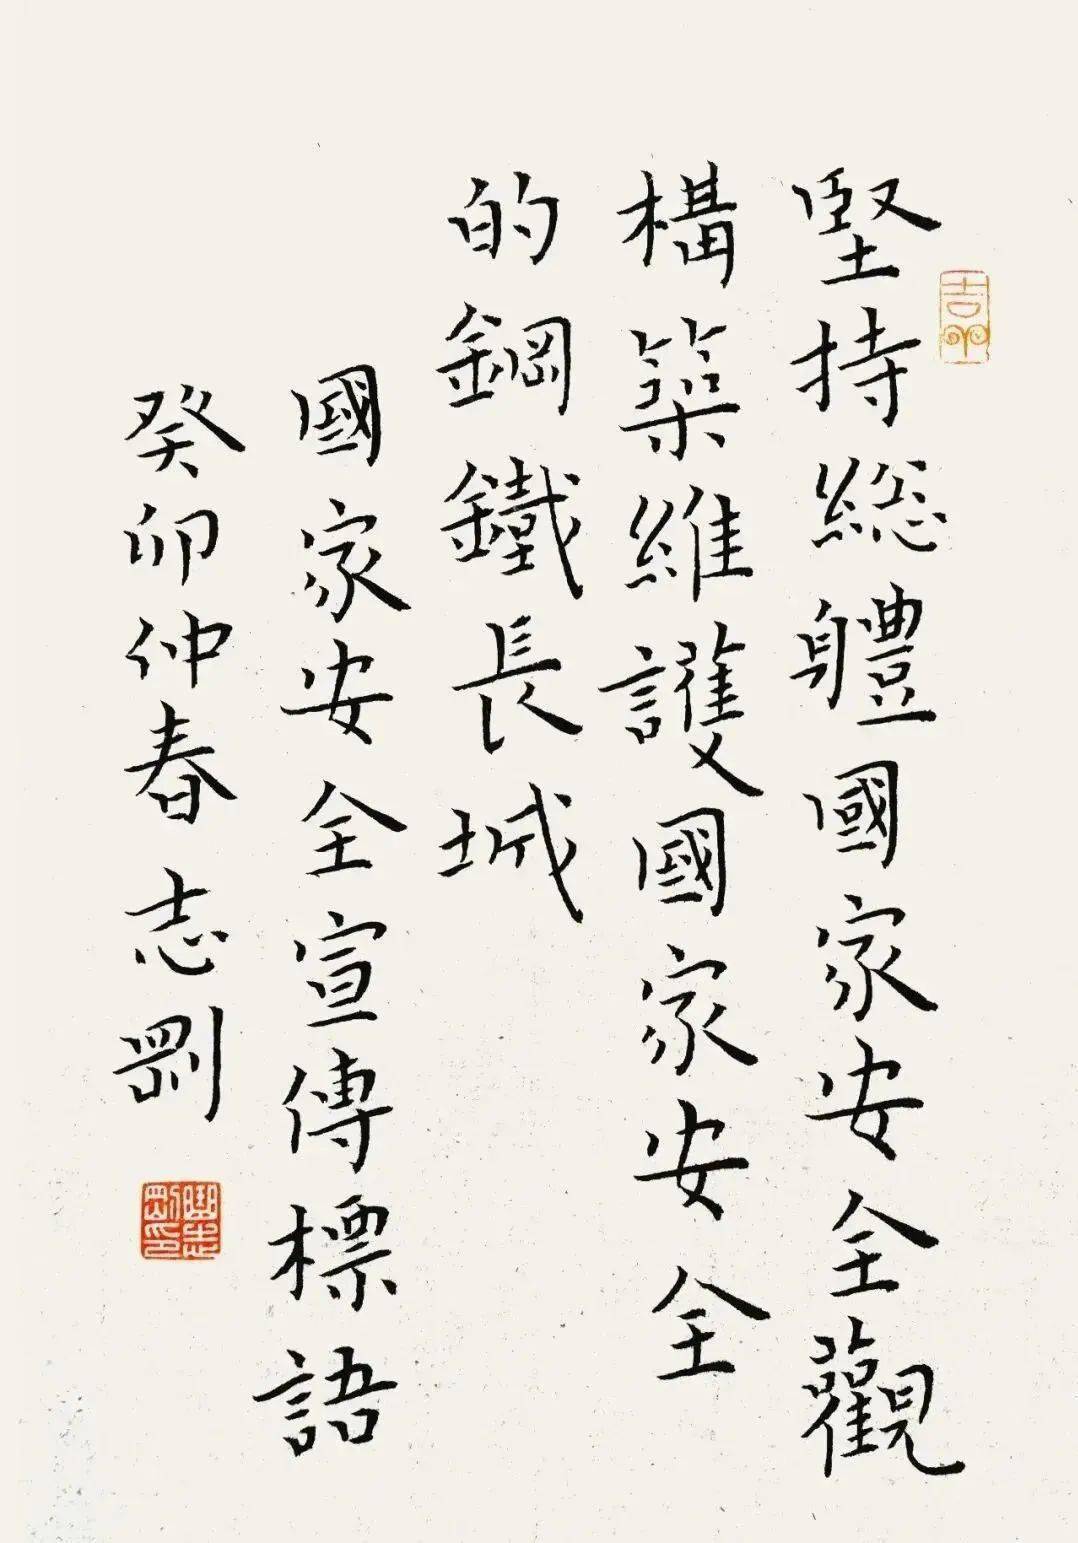 堅持総軆國家安全觀
構築維護國家安全
的鋼鐵長城
國家安全宣傳標語
癸卯仲春志剛